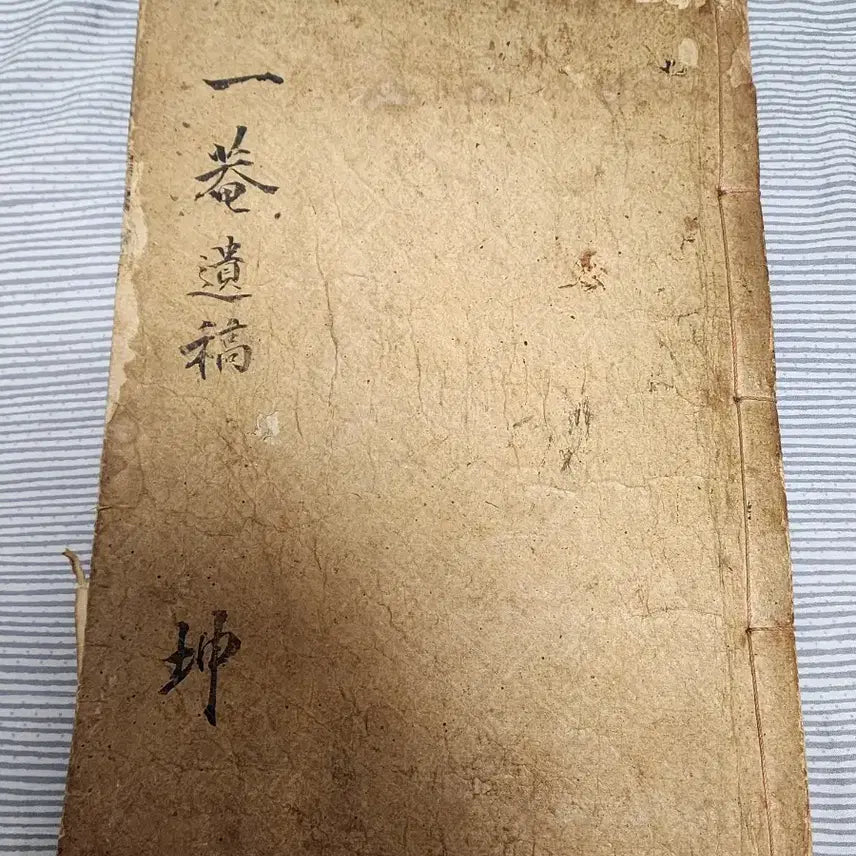 一菴遺稿
坤